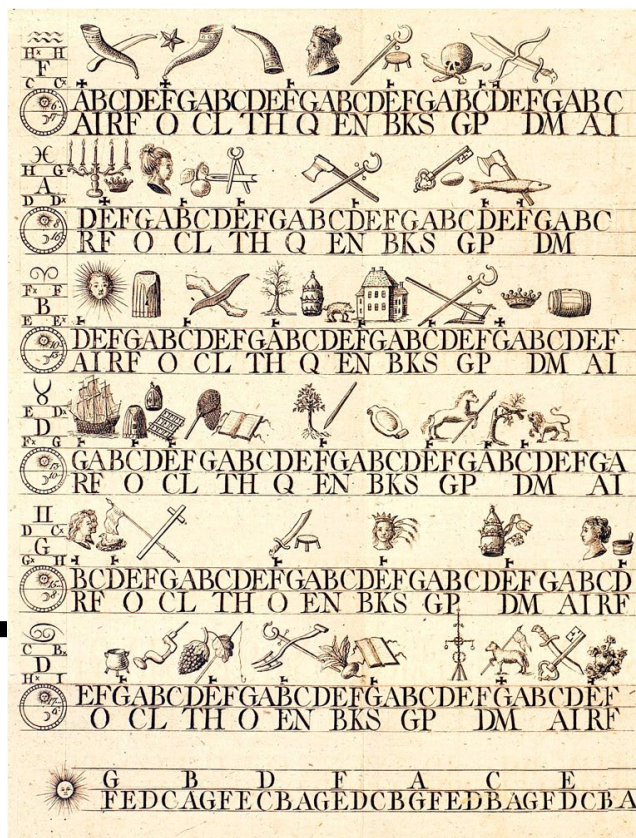 H H
F
C C
ABCDEFGABCDEFGABCDEFGABCDEFGABC
AIRF O CL TH Q EN BKS GP DM AI
H G
A
D D
DEFGABCDEFGABCDEFGABCDEFGABC
RF O CL TH Q EN BKS GP DM
F F
B
E E
DEFGABCDEFGABCDEFGABCDEFGABCDEF
AIRF O CL TH Q EN BKS GP DM AI
E D
D
F G
GABCDEFGABCDEFGABCDEFGABCDEFGA
RF O CL TH Q EN BKS GP DM AI
D C
G
G H
BCDEFGABCDEFGABCDEFGABCDEFGABCD
RF O CL TH O EN BKS GP DM AIRF
C B
D
H I
EFGABCDEFGABCDEFGABCDEFGABCDEF
O CL TH O EN BKS GP DM AIRF
G B D F A C E
FEDCAGFECBAGEDCBGFEDBAGFDCBA